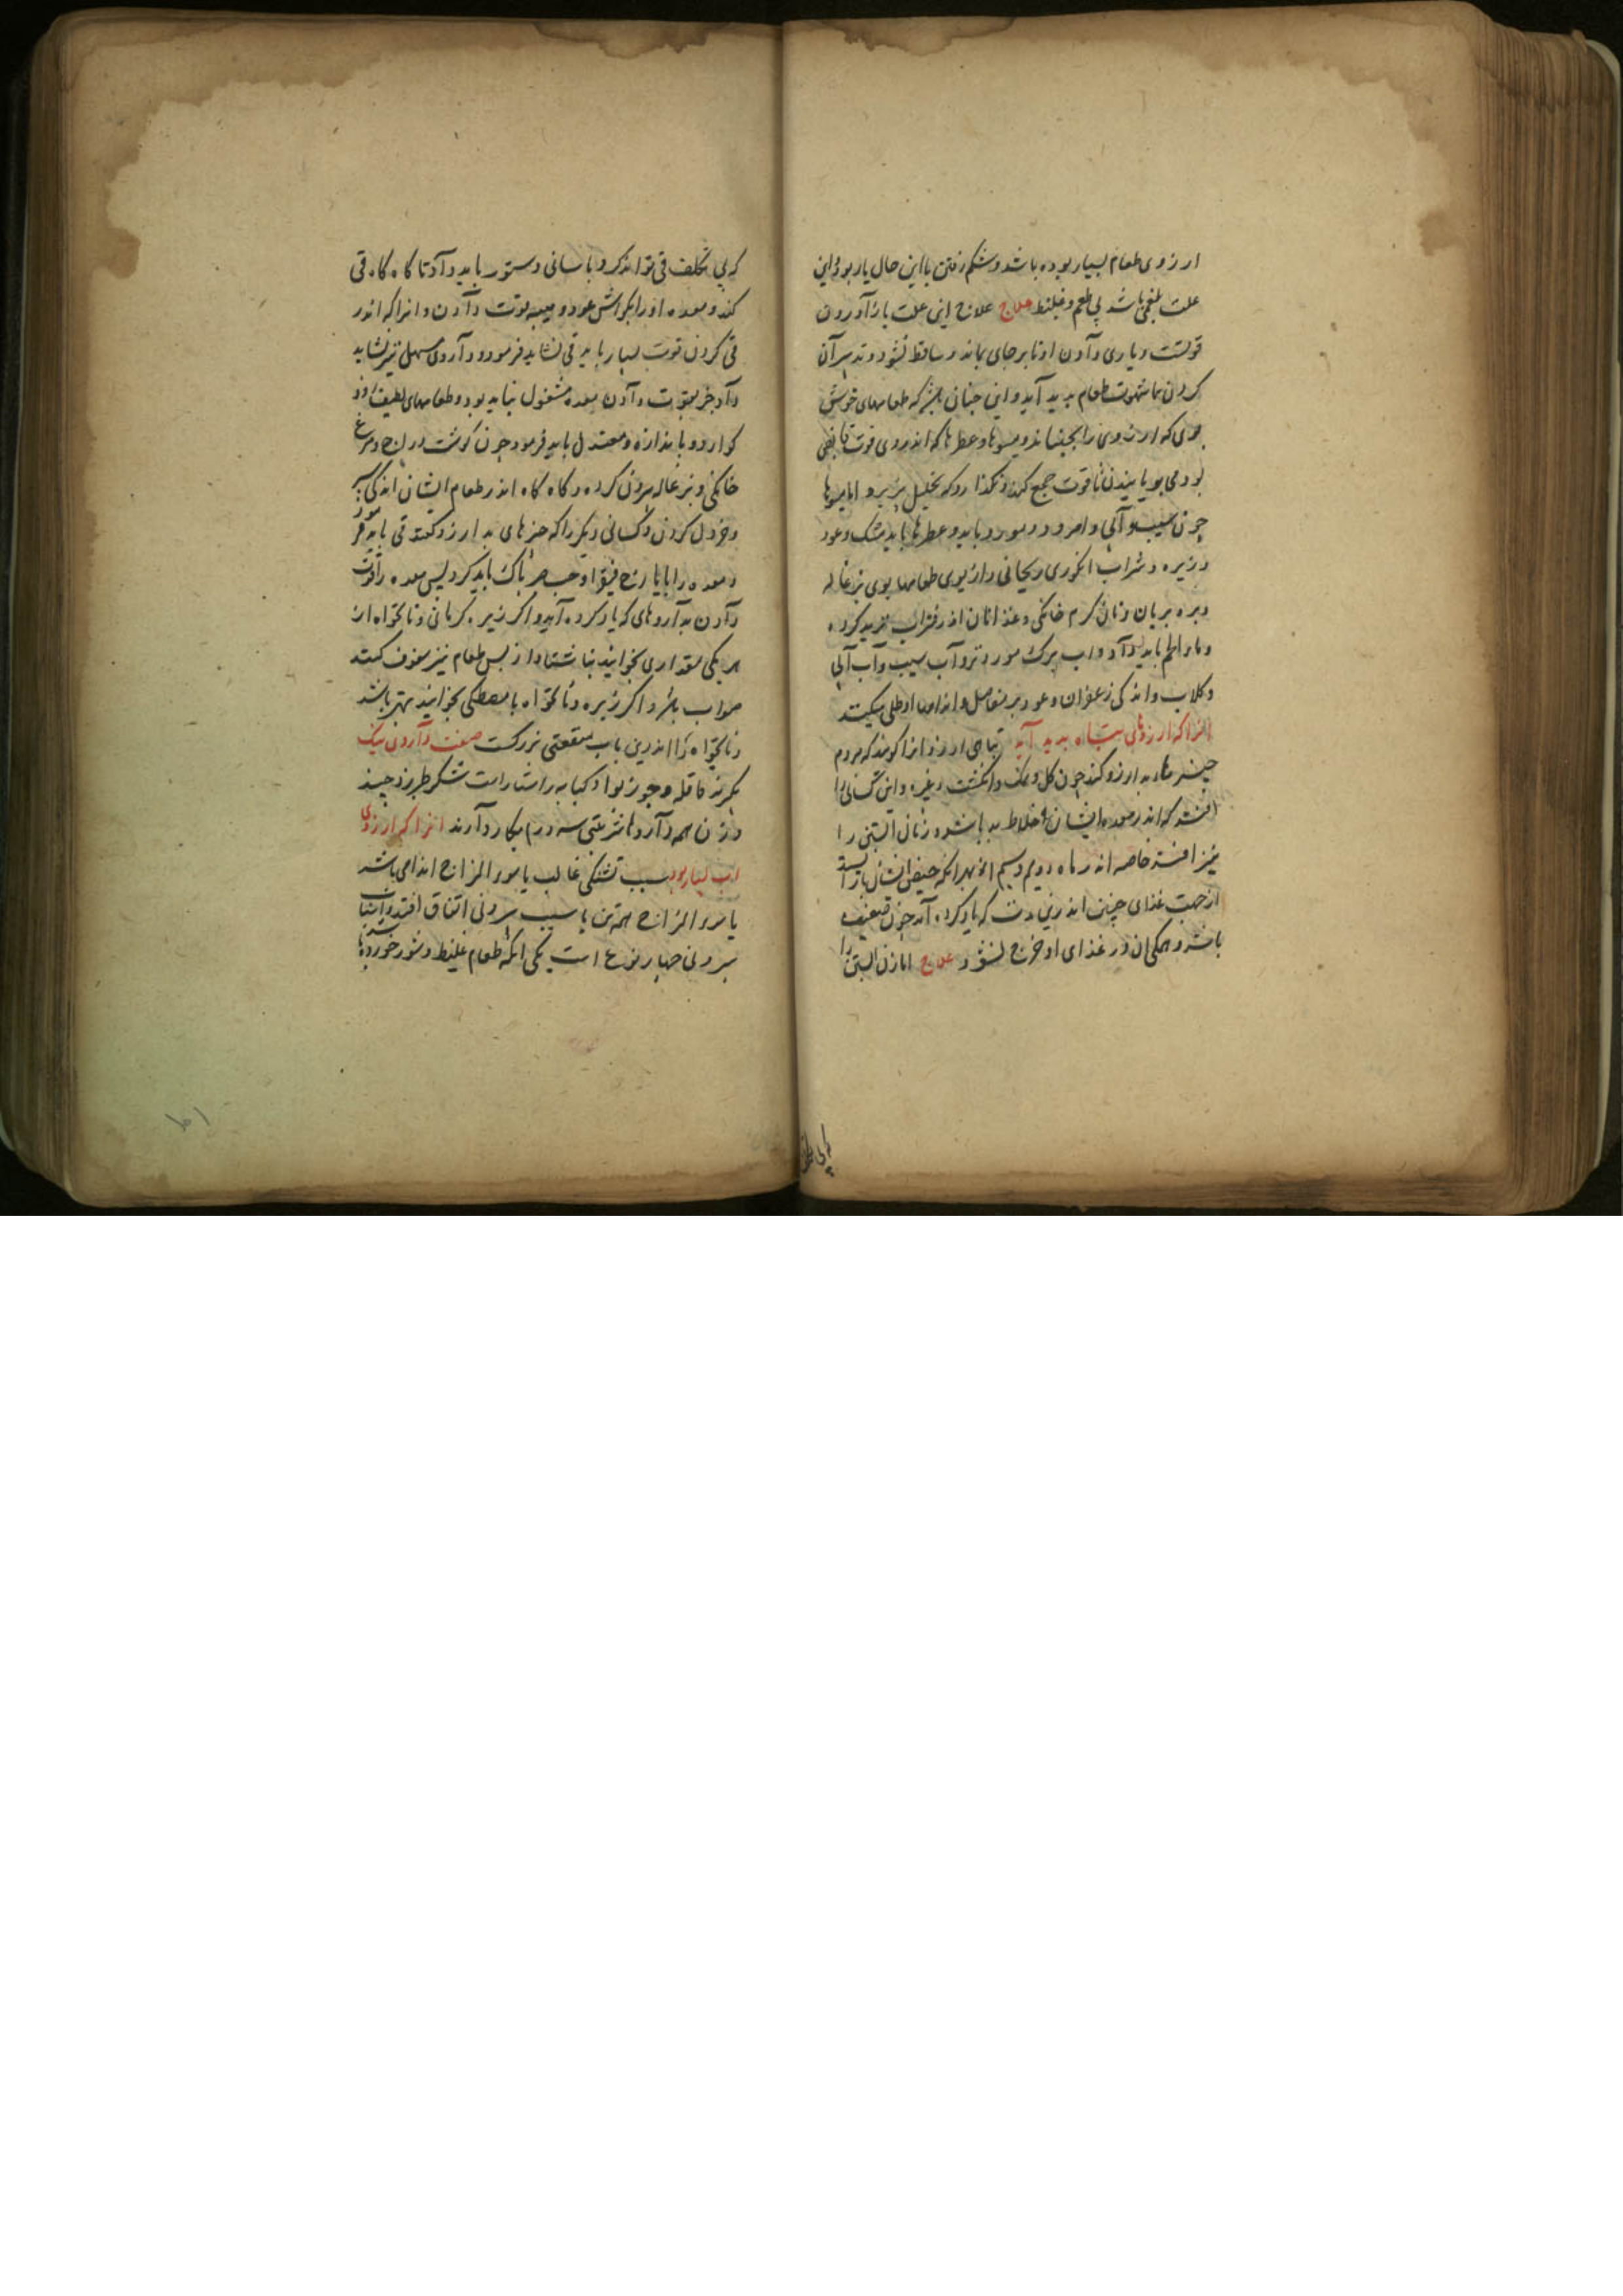 ارزوی طعام بسیار بوده باشد و شکم رفتن با این حال یار بود و این
علت بلغمی باشد بی طعم و غلیظ علاج علاج این علت باز آوردن
قوتست و یاری دادن او تا برجای بماند و ساقط نشود و تدبیر آن
کردن تا شهوت طعام پدید آید و این جنان باشد که طعامهای خوش
بوی که ارزوی را بجنباند و میوها و عطرها که اندروی قوت قابضی
بود می بویانیدن تا قوت جمع کند و نکذارد که تحلیل پذیرد اما میوها
جون سیب و آبی و امرود و مورد باید و عطرها باید مشک و عود
و زیره و شراب انکوری ریحانی و از بوی طعامها بوی بزغاله
و بره بریان و نان کرم خانکی و عذا انان اندر شراب ترید کرده
و ماء اللحم باید داد و اب برک مورد تر و آب سیب و آب آبی
و کلاب و اندکی زعفران و عود بر مفاصل و اندامها او طلی میکنند
انرا که ارزوهای تباه پدید آید تباهی ارزو انرا کویند که مردم
جیزهاء بد ارزو کند جون کل و نمک و انکشت و غیره و این کسانی را
افتد که اندر معده ایشان اخلاط بد باشد و زنان آبستن را
نیز افتد خاصه اندر ماه دویم و سیم از بهر آنکه حیض ایشان باز ایستد
از جهت غذای جنین اندرین مدت که یاد کرده آمد جون ضعیف
باشد و همکی ان در غذای او خرج نشود علاج اما زن آبستن را
که بی تکلف قی تواند کرد باسانی دستور باید داد تا کاه کاه قی
کند و معده او را بکوارش عود و میبه قوت دادن و انرا که اندر
قی کردن قوت بسیار باید قی نشاید فرمود و داروی مسهل نیز نشاید
داد جز بقوت دادن معده مشغول نباید بود و طعامهای لطیف زود
کوارد و باندازه و معتدل باید فرمود جون کوشت دراج و مرغ
خانکی و بزغاله بیرون کرده و کاه کاه اندر طعام ایشان اندکی سیر
و خردل کردن و کسانی دیکر را که جیزهای بد ارزو کند قی باید فرمود
و معده را با یارج فیقرا و حب صبر پاک باید کرد و پس معده را قوت
دادن بداروهای که یاد کرده آید و اکر زیره کرمانی و نانخواه از
هر یکی مقداری بخوایند ناشتا و از پس طعام نیز سفوف کنند
صواب باشد و اکر زیره و نانخواه با مصطکی بخوایند بهتر باشد
و نانخواه را اندرین باب منفعتی بزرکست صفت داروی نیک
بکیرند قاقله و جوز بوا و کبابه راستا راست شکر طبرزد جند
وزن همه داروها شربتی سه درم بکار دارند انرا که ارزوی
اب بسیار بود سبب تشنکی غالب یا سوء المزاج اندامی باشد
یا سوء المزاج همه تن یا سبب بیرونی اتفاق افتد و اسباب
بیرونی جهار نوع است یکی انکه طعام غلیظ و شور خورده باشند
که بی تکلف